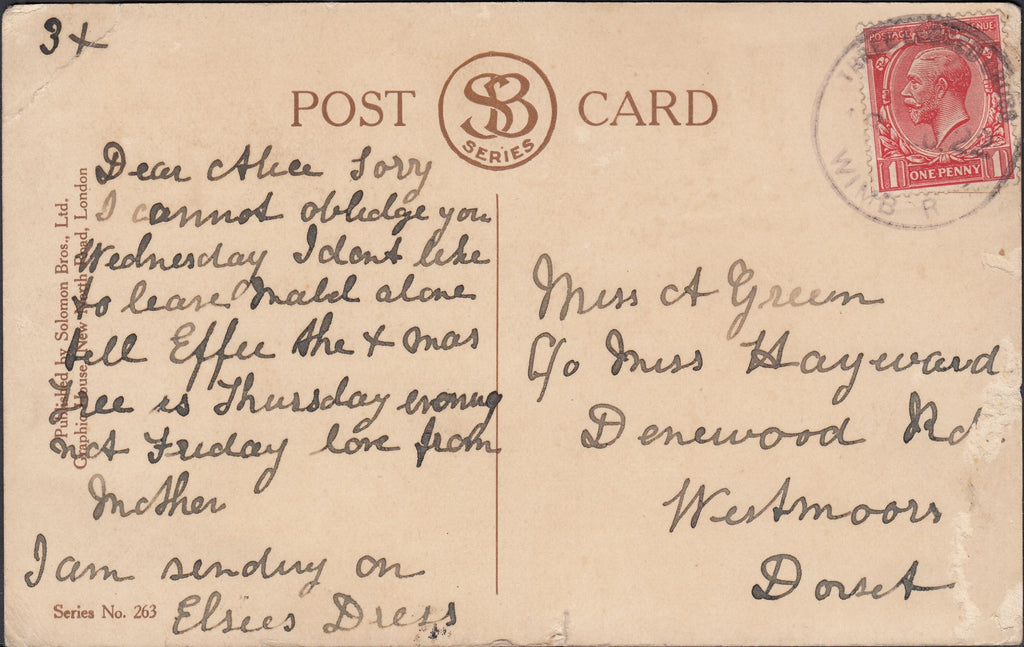 3+
POST CARD
SB
SERIES
Dear Alice Sorry
I cannot obledge you
Wednesday I dont like
to leave Mabel alone
tell Effee the Xmas
Tree is Thursday evonug
not Friday love from
Mother
I am sending on
Elsies Dress
Published by Solomon Bros., Ltd.
Graphic House, New North Road, London
Series No. 263
POSTAGE REVENUE
1 ONE PENNY 1
WIMB R
22
Miss A Green
C/o Miss Hayward
Denewood Rd
Westmoors
Dorset